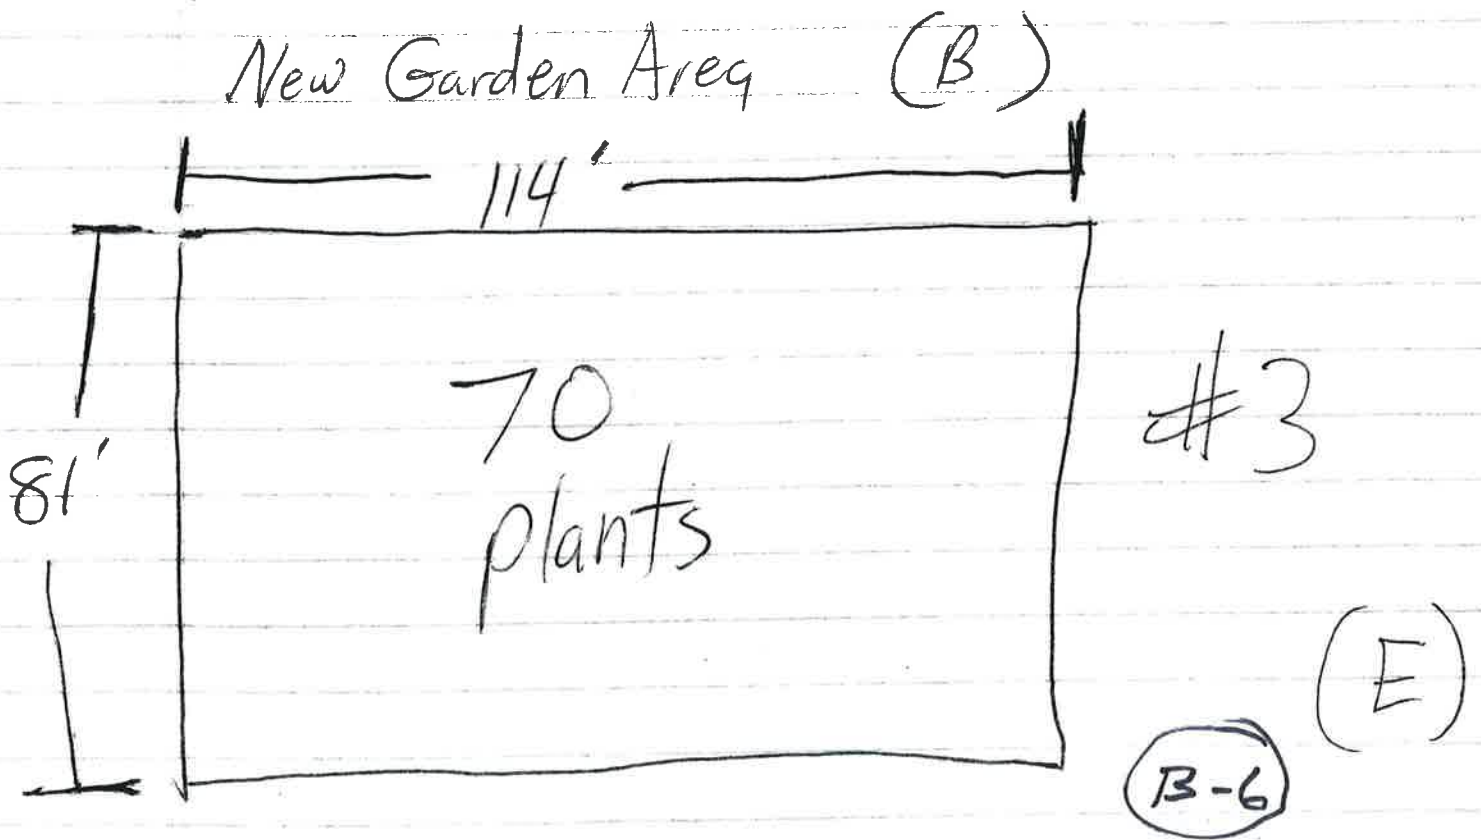 New Garden Area (B)
114'
81'
70
plants
#3
(E)
B-6